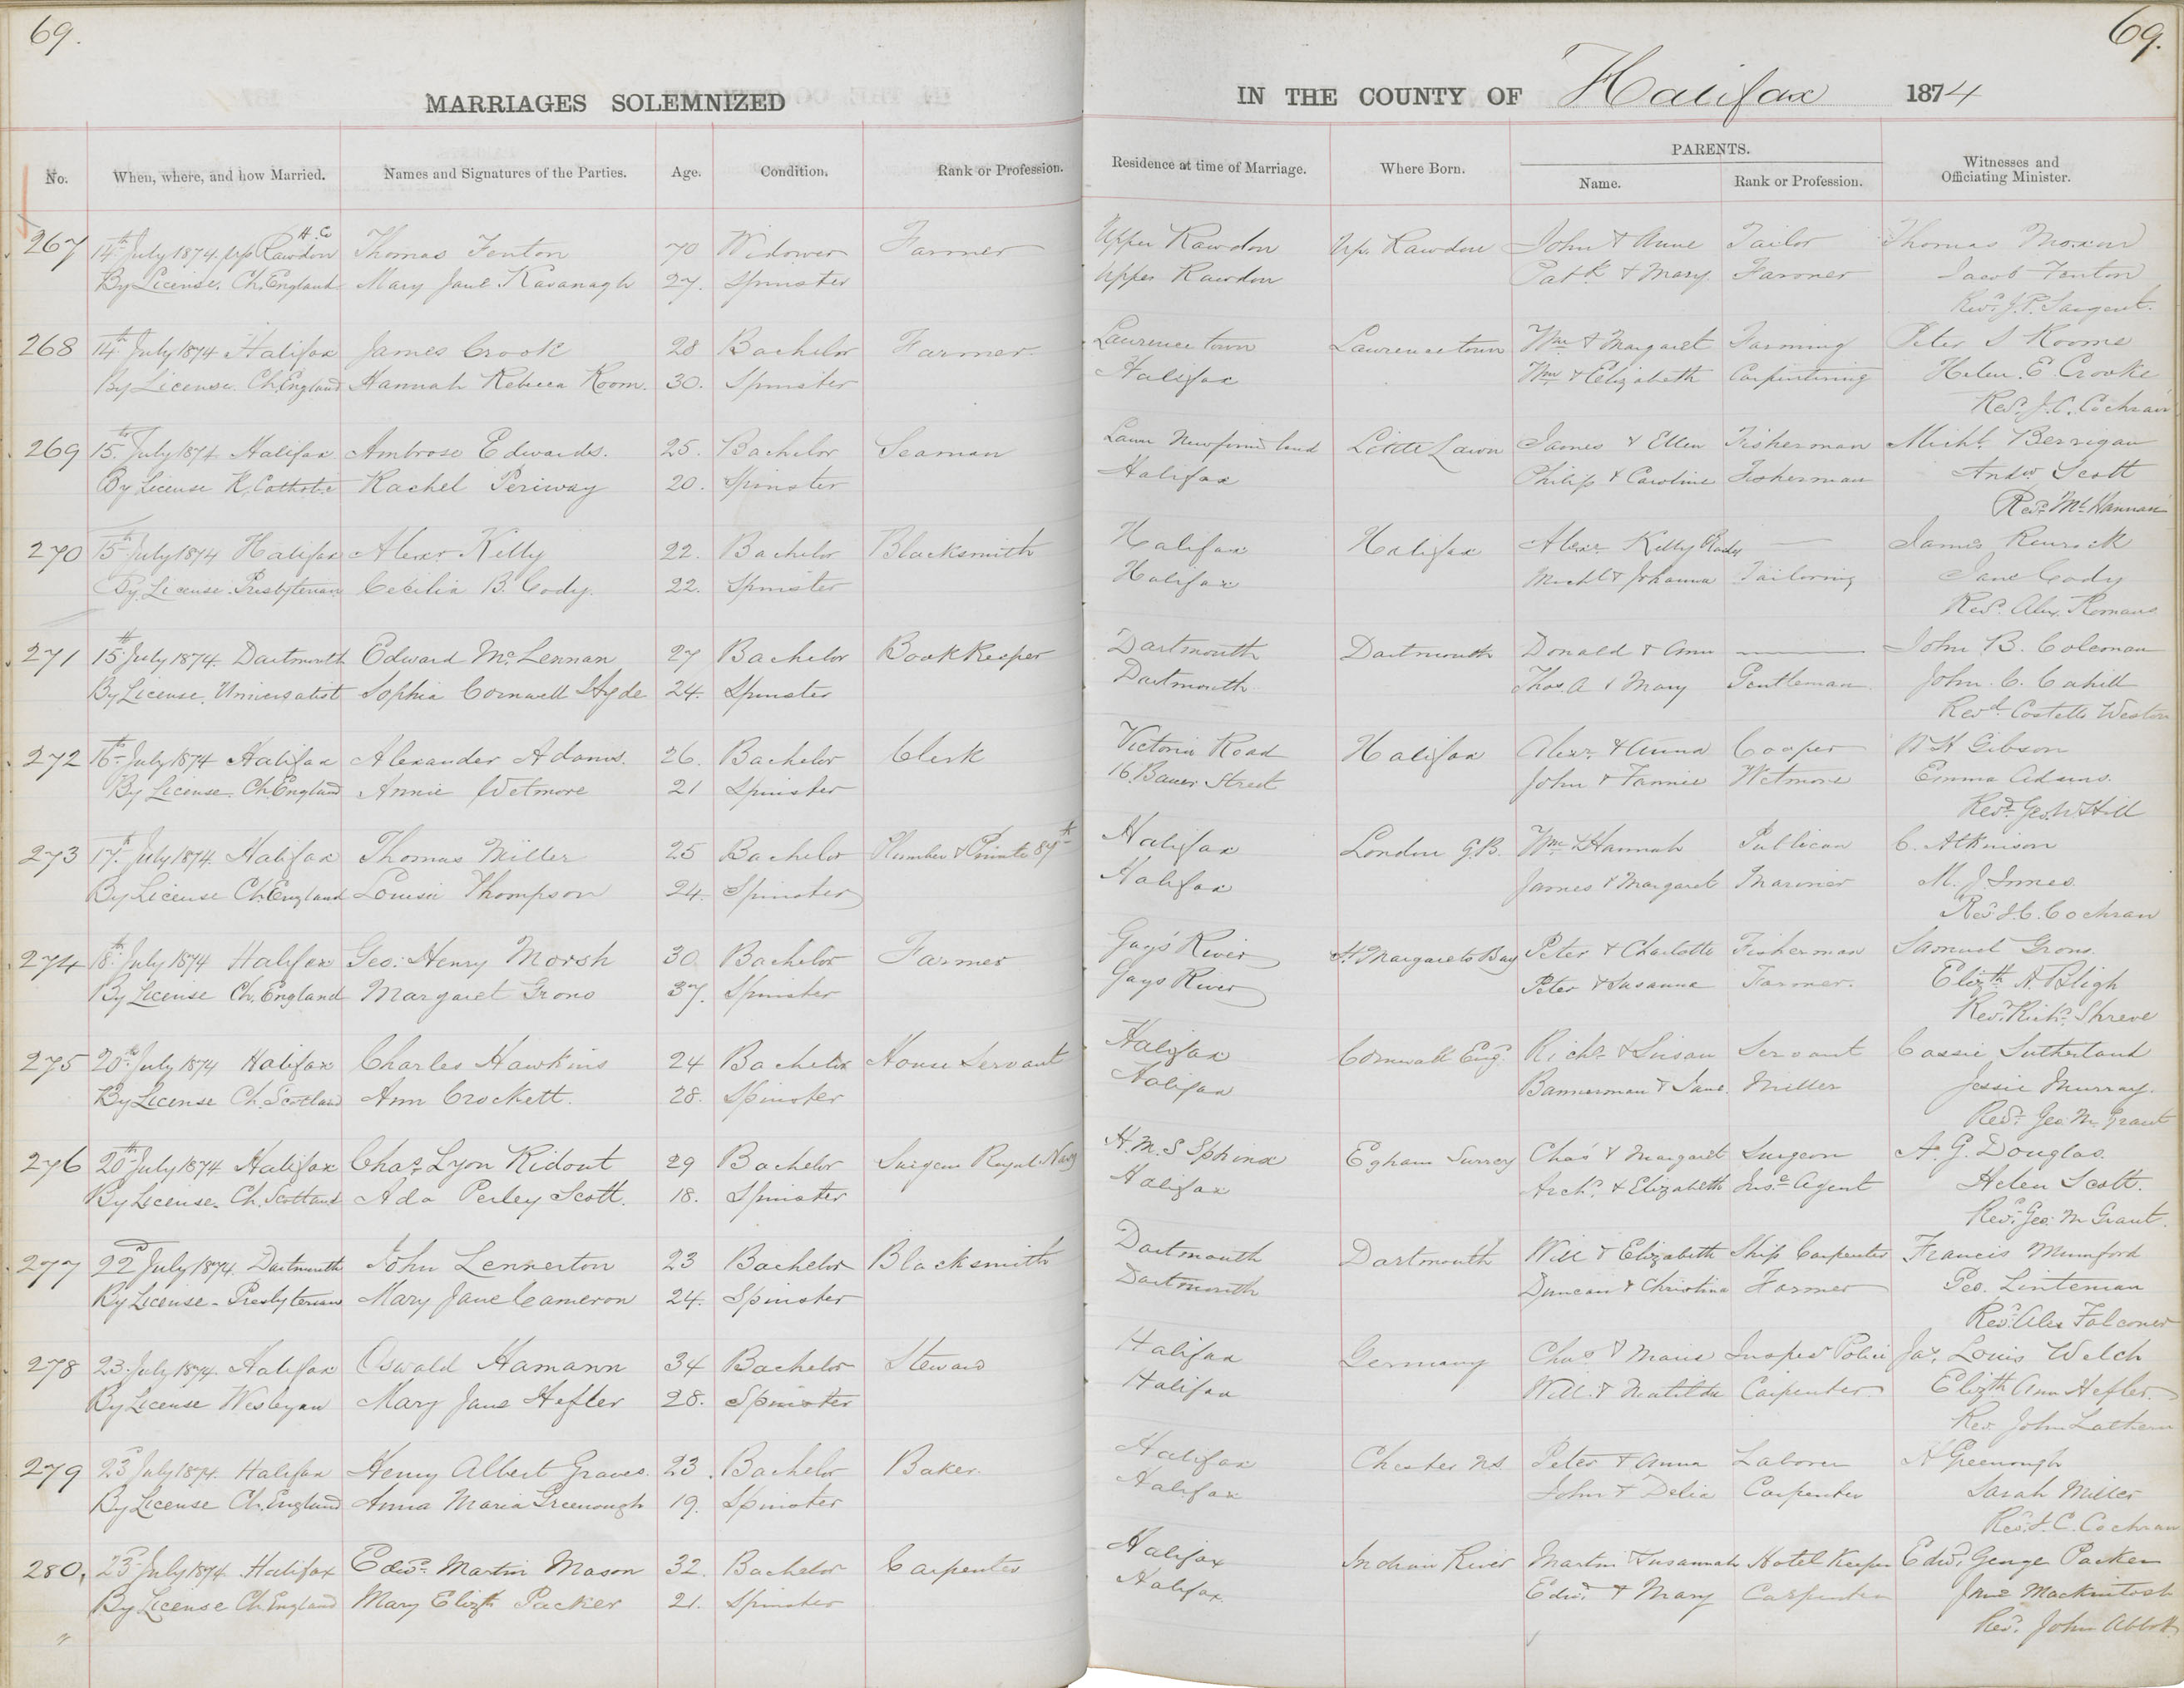 69.
69.
MARRIAGES SOLEMNIZED
IN THE COUNTY OF Halifax 1874
No. When, where, and how Married. Names and Signatures of the Parties. Age. Condition. Rank or Profession. Residence at time of Marriage. Where Born. PARENTS. Name. Rank or Profession. Witnesses and Officiating Minister.
H. Co
267 14th July 1874. Up Rawdon Thomas Fenton 70 Widower Farmer Upper Rawdon Up. Rawdon John & Anne Tailor Thomas Moxon
By License. Ch. England Mary Jane Kavanagh 27. Spinster Upper Rawdon Patk. & Mary Farmer Jacob Fenton
Revd. J. P. Sargent.
268 14th July 1874 Halifax James Crook 28 Bachelor Farmer Lawrence town Lawrencetown Wm & Margaret Farming Peter S Roome
By License. Ch. England Hannah Rebecca Room. 30. Spinster Halifax Wm & Elizabeth Carpentining Helen E Crooke
Revd. J. C. Cochran
269 15th July 1874 Halifax Ambrose Edwards. 25. Bachelor Seaman Lawn Newfound land Little Lawn James & Ellen Fisherman Michl. Berrigan
By License R. Catholic Rachel Periway 20. Spinster Halifax Philip & Caroline Fisherman Andw. Scott
Revd. Mc. Hannan
270 15th July 1874 Halifax Alexr. Kelly 22. Bachelor Blacksmith Halifax Halifax Alexr. Kelly — James Renwick
By License. Presbyterian Cecilia B. Cody. 22. Spinster Halifax Michl & Johanna Tailoring Jane Cody
Revd. Alex. Romans
271 15th July 1874. Dartmouth Edward Mc. Lennan 27 Bachelor BookKeeper Dartmouth Dartmouth Donald & Ann — John B. Coleman
By License. Universalist Sophia Cornwell Hyde 24. Spinster Dartmouth. Thos. A & Mary Gentleman John C. Cahill
Revd. Costello Weston
272 16th July 1874 Halifax Alexander Adams. 26. Bachelor Clerk Victoria Road Halifax Alexr. & Anna Cooper W H Gibson
By License. Ch. England Annie Wetmore 21 Spinster 16. Bauer Street John & Fannie Wetmore Emma Adams.
Revd. Geo. W Hill
273 17th July 1874. Halifax Thomas Miller 25 Bachelor Plumber & Private 87th Halifax London G.B. Wm & Hannah Publican C. Atkinson
By License Ch. England Louisa Thompson 24. Spinster Halifax James & Margaret Mariner M. J. Innes.
Revd. J C. Cochran
274 18th July 1874 Halifax Geo: Henry Morsh 30 Bachelor Farmer Gays' River St. Margarets Bay Peter & Charlotte Fisherman Samuel Grono.
By License Ch. England Margaret Grono 37. Spinster Gays River Peter & Susanna Farmer. Elizth A. Bligh
Revd. Richd. Shreve
275 20th July 1874 Halifax Charles Hawkins 24 Bachelor House Servant Halifax Cornwall Eng. Richd. & Susan Servant Cassie Sutherland
By License Ch. Scotland Ann Crockett. 28. Spinster Halifax Bannerman & Jane. Miller Jessie Murray.
Revd. Geo M. Grant
276 20th July 1874 Halifax Chas Lyon Ridout 29 Bachelor Surgeon Royal Navy H.M.S Sphinx Egham Surrey Chas & Margaret Surgeon A. G. Douglas.
By License. Ch. Scotland Ada Perley Scott. 18. Spinster Halifax Archd. & Elizabeth Inse. Agent Helen Scott.
Revd. Geo: M Grant.
277 22d July 1874. Dartmouth John Lennerton 23 Bachelor Blacksmith Dartmouth Dartmouth Will & Elizabeth Ship Carpenter Francis Mumford
By License - Presbyterian Mary Jane Cameron 24. Spinster Dartmouth Duncan & Christina Farmer Geo. Linteman
Revd. Alex Falconer
278 23. July 1874. Halifax Oswald Hamann 34 Bachelor Steward Halifax Germany Chas. & Marie Inspr Police Jas. Louis Welch
By License Wesleyan Mary Jane Hefler 28. Spinster Halifax Will. & Matilda Carpenter Elizth Ann Hefler.
Rev John Lathern
279 23d July 1874. Halifax Henry Albert Graves. 23. Bachelor Baker. Halifax Chester N.S. Peter & Anna Laborer A Greenough
By License Ch. England Anna Maria Greenough 19. Spinster Halifax John & Delia Carpenter Sarah Miller
Revd. J. C. Cochran
280. 23d July 1874 Halifax Edwd. Martin Mason 32. Bachelor Carpenter Halifax Indian River Martin & Susannah Hotel Keeper Edwd. George Packer
By License Ch. England Mary Elizth Packer 21. Spinster Halifax. Edwd. & Mary Carpenter Jane Mackintosh
Revd. John Abbott